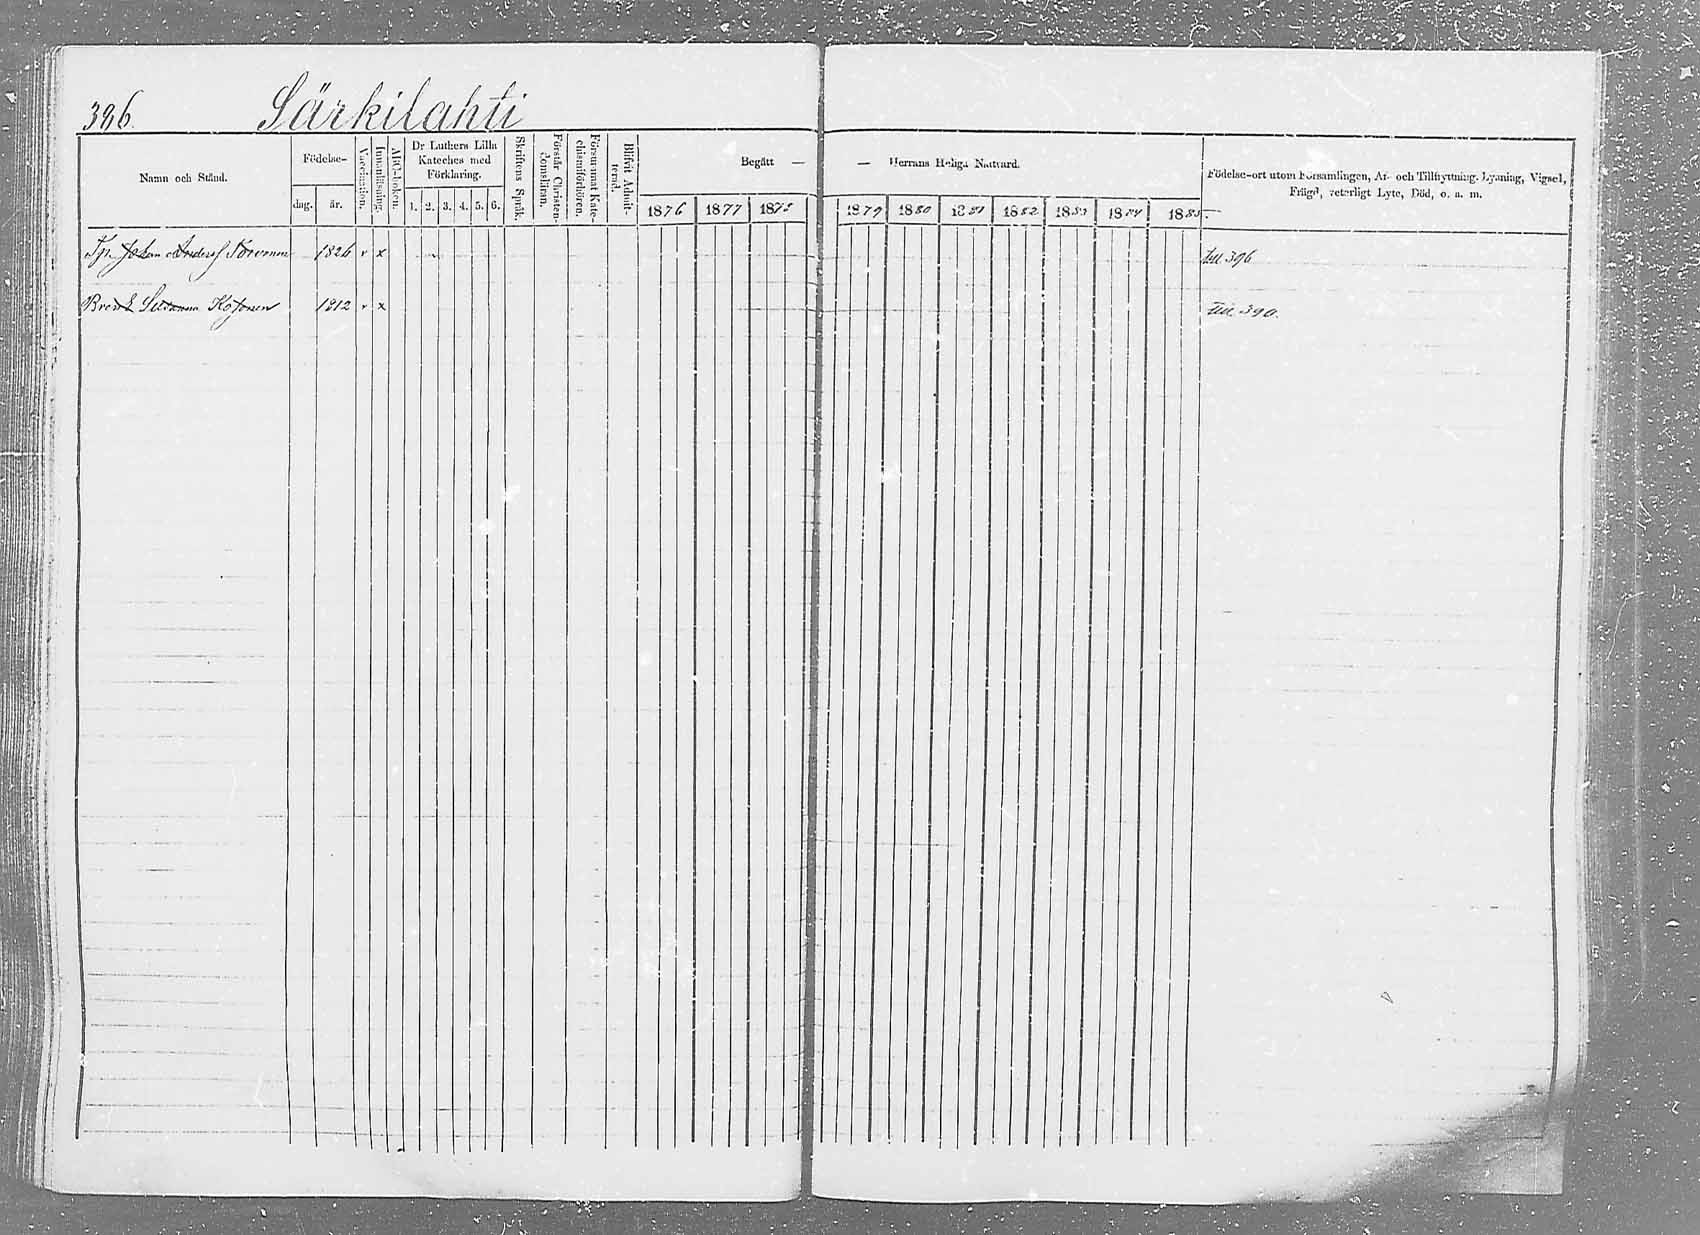 386.
Särkilahti
Namn och Stånd.
Födelse-
dag. år.
Vaccination.
Innanläsning.
ABC-boken.
Dr Luthers Lilla
Kateches med
Förklaring.
1. 2. 3. 4. 5. 6.
Skriftens Språk.
Förstår Christen-
domsläran.
Försummat Kate-
chismiförhören.
Blifvit Admit-
terad.
Begått — — Herrans Heliga Nattvard.
1876 1877 1878 1879 1880 1881 1882 1883 1884 1885
Födelse-ort utom Församlingen, Af- och Tillflyttning, Lysning, Vigsel,
Frägd, veterligt Lyte, Död, o. a. m.
Johan Anders 1826 v x till 396
Susanna 1812 v x till 390.